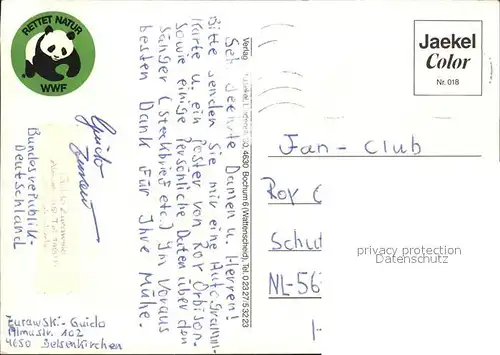 RETTET NATUR
WWF
Sehr geehrte Damen u. Herren!
Bitte senden Sie mir eine Autogramm-
karte u. ein Poster von Roy Orbison.
sowie einige persönliche Daten über den
Sänger (Steckbrief etc.) Im Voraus
besten Dank für Ihre Mühe.
Guido
Zurawski
Bundesrepublik-
Deutschland
Zurawski-Guido
Almastr. 102
4650 Gelsenkirchen
Verlag 4630 Bochum 6 (Wattenscheid), Tel. 02327/53223
Jaekel
Color
Nr. 018
Fan-Club
Roy
Schu
NL-56
privacy protection
Datenschutz